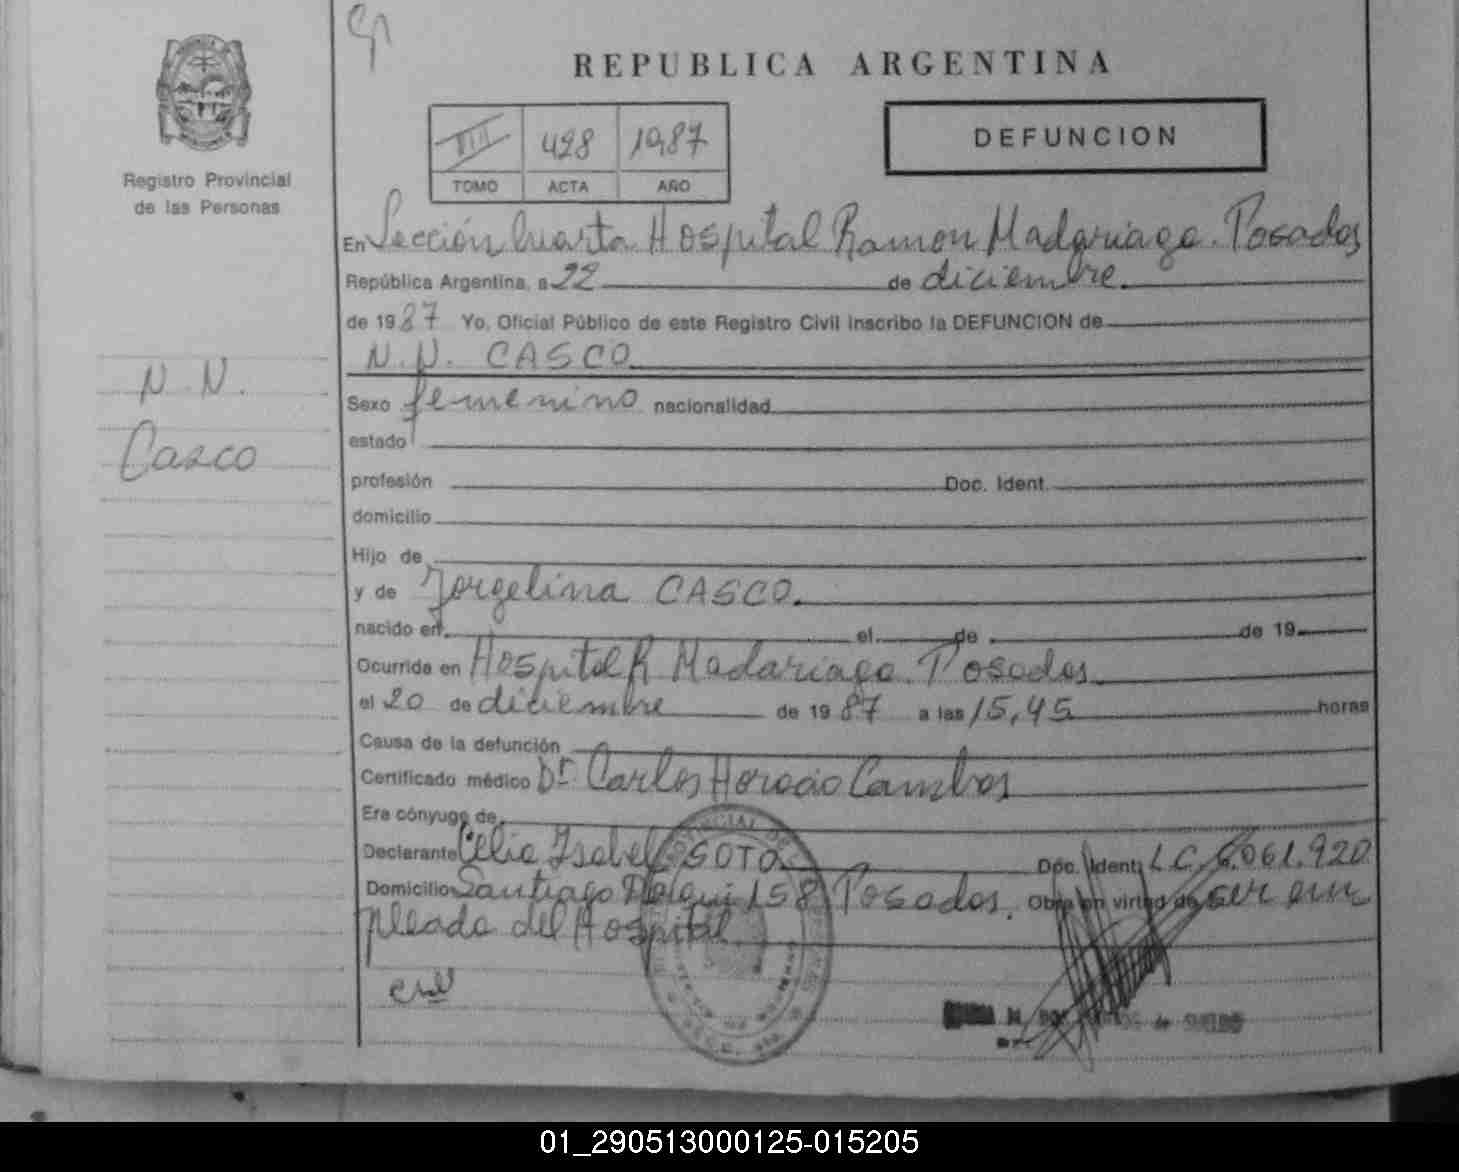 REPUBLICA ARGENTINA
Registro Provincial
de las Personas
VIII 428 1987
TOMO ACTA AÑO
DEFUNCION
En Sección Cuarta Hospital Ramon Madariaga. Posadas
República Argentina, a 22 de diciembre.
de 1987 Yo, Oficial Público de este Registro Civil inscribo la DEFUNCION de
N.N. CASCO
N. N.
Casco
Sexo femenino nacionalidad
estado
profesión Doc. Ident.
domicilio
Hijo de
y de Jorgelina CASCO.
nacido en el de de 19
Ocurrida en Hospital R Madariaga. Posadas.
el 20 de diciembre de 1987 a las 15,45 horas
Causa de la defunción
Certificado médico Dr. Carlos Horacio
Era cónyuge de
Declarante Celia Isabel SOTO Doc. Ident. L.C. 6.061.920
Domicilio Santiago 158 Posadas. Obra en virtud de ser em
pleada del Hospital.
01_290513000125-015205